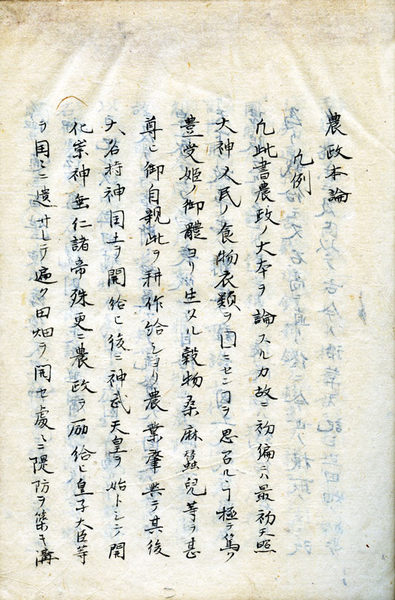 農政本論
凡例
凡此書農政ノ大本ヲ論スルカ故ニ初編ニハ最初天照
大神人民ノ食物衣類ヲ固ニセンコヲ思召ルヿ極テ篤ク
豊受姫ノ御體ヨリ生スル穀物桑麻蠶兒等ヲ甚
尊ヒ御自親此ヲ耕作給シヨリ農業肇興テ其後
大名持神国土ヲ開給ヒ後ニ神武天皇ヲ始トシテ開
化崇神垂仁諸帝殊更ニ農政ヲ励給ヒ皇子大臣等
ヲ国ニ遣サレテ遍ク田畑ヲ開セ處々ニ隄防ヲ築キ溝